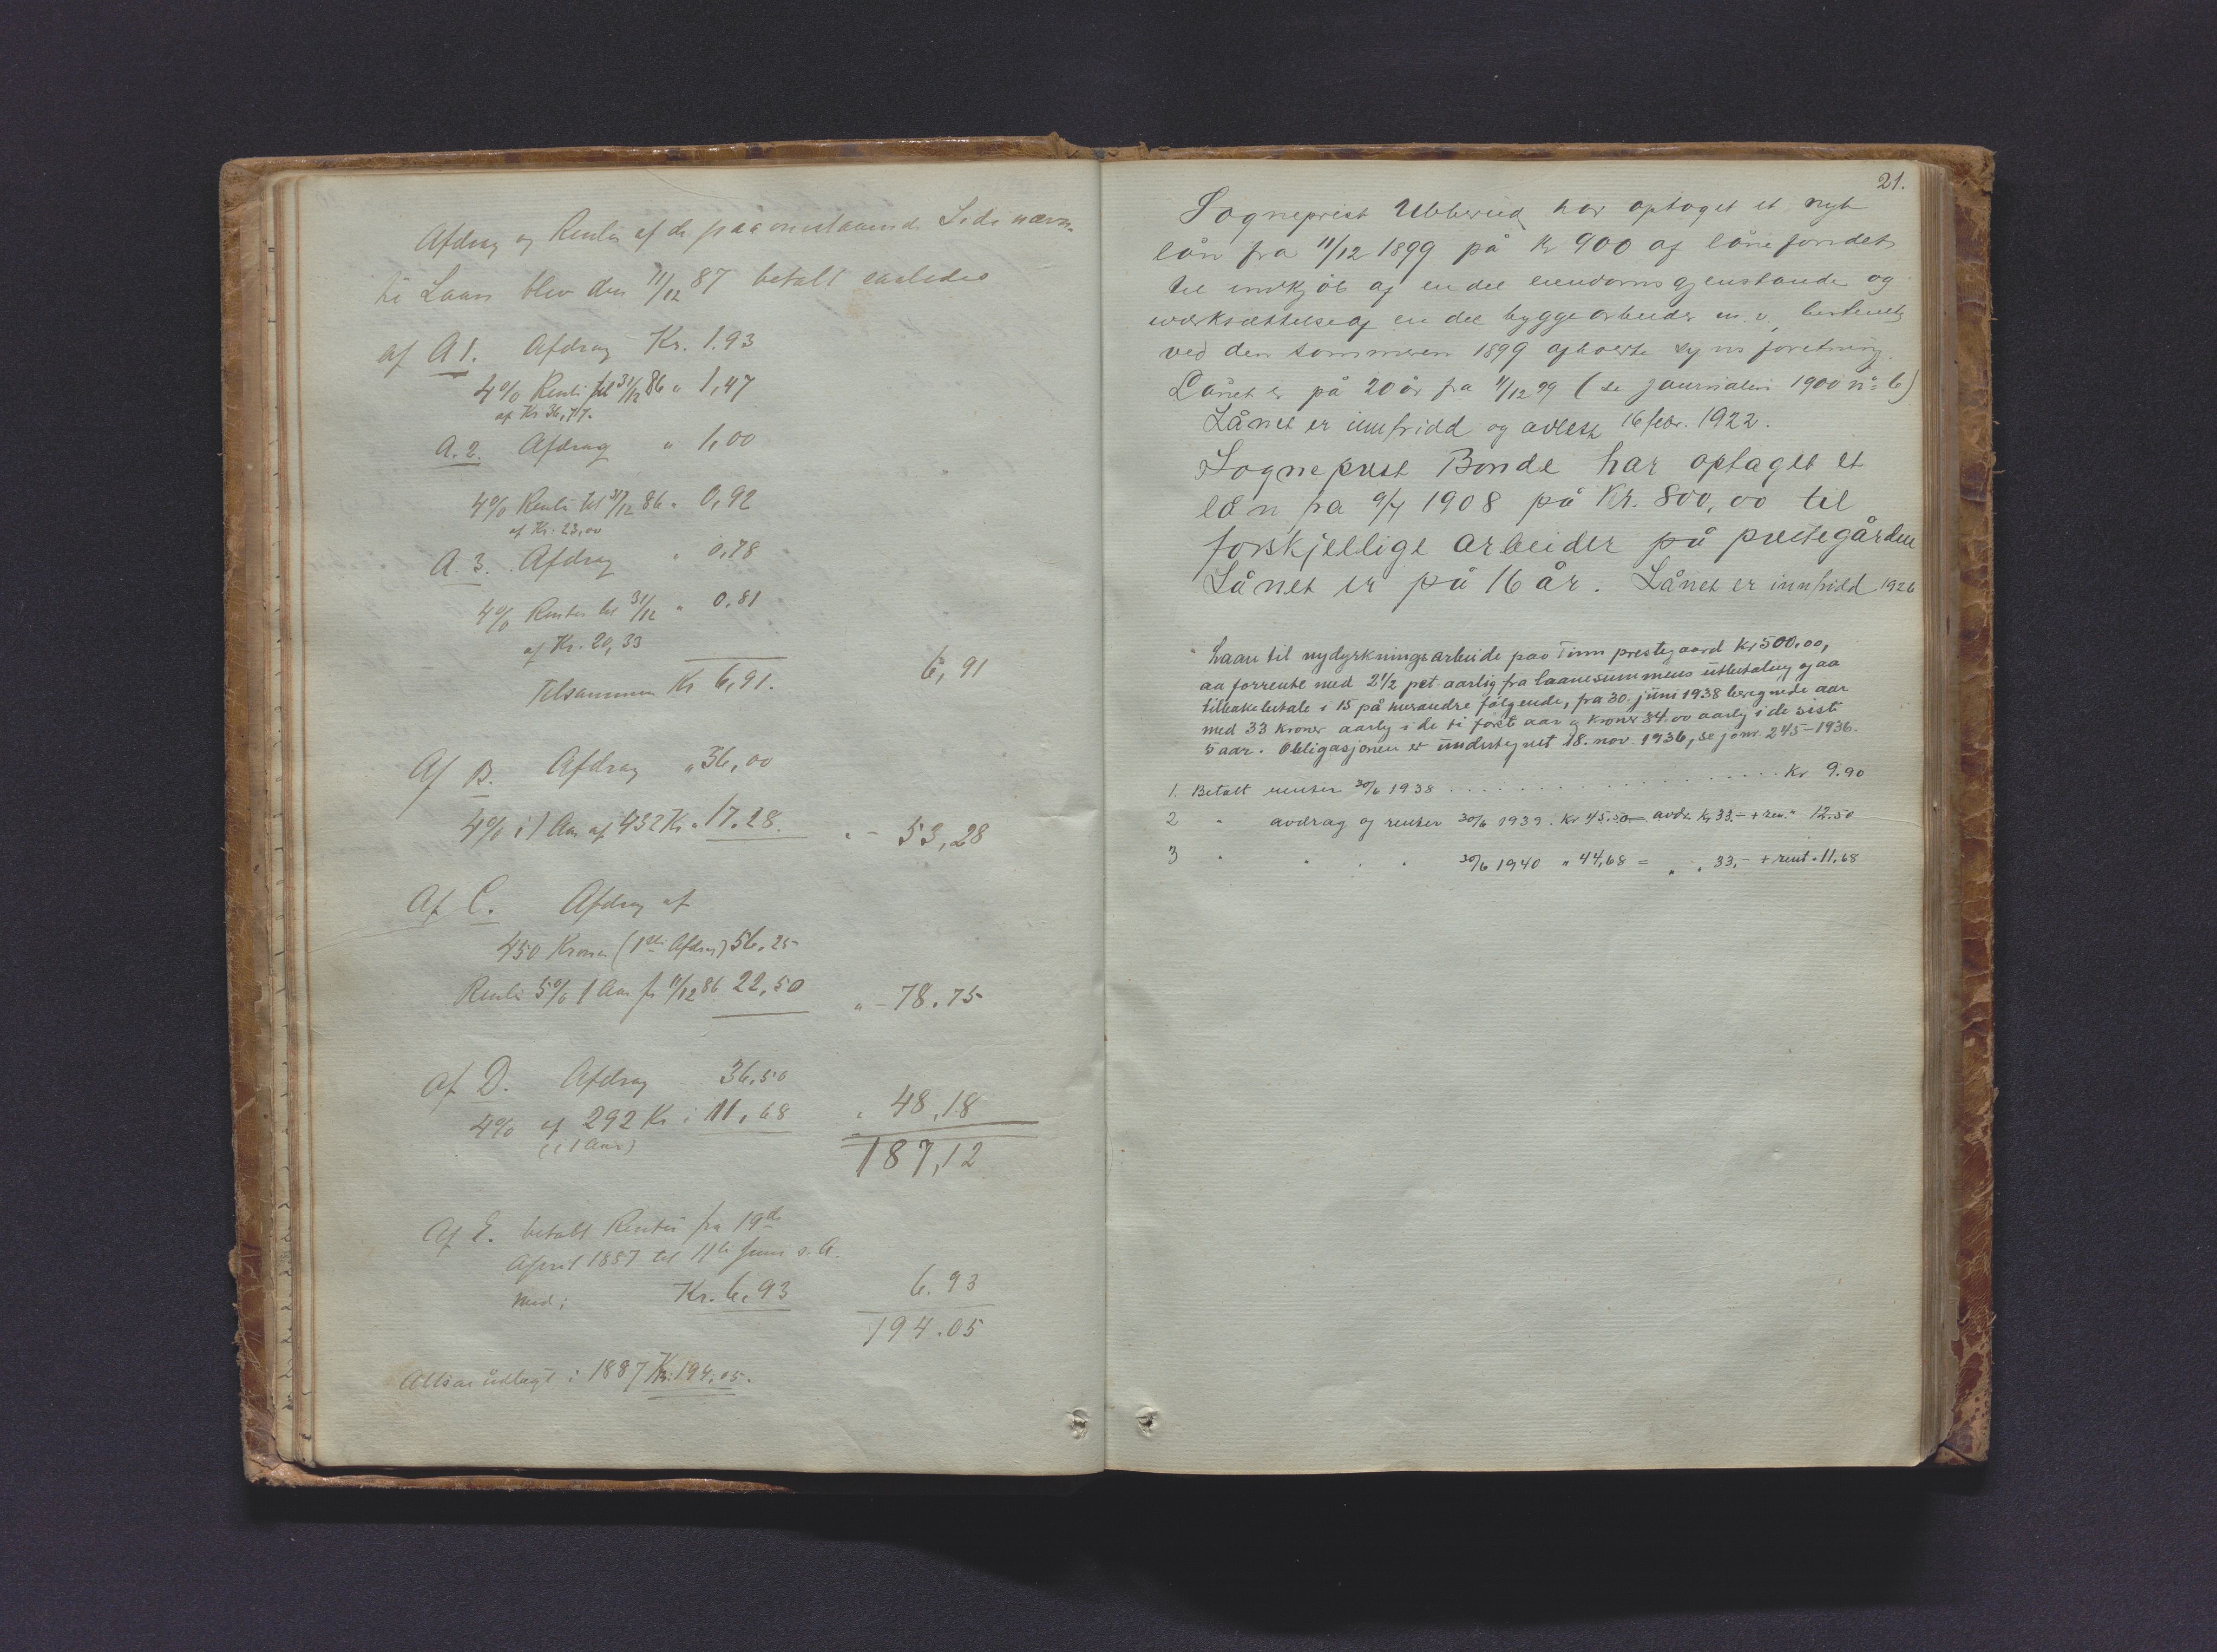 Afdrag og Renter af de paa omstaaende Side nævn-
te Laan blev den 11/12 87 betalt saaledes
af A 1. Afdrag Kr. 1.93
4% Rente til 31/12 86 " 1,47
af Kr 36,77.
A. 2. Afdrag " 1,00
4% Rente til 31/12 86 " 0,92
af Kr. 23,00
A. 3. Afdrag " 0,78
4% Renter til 31/12 " 0,81
af Kr. 20,33
Tilsammen Kr 6,91. 6,91
Af B. Afdrag " 36,00
4% i 1 Aar af 432 Kr " 17.28. " - 53,28
Af C. Afdrag af
450 Kroner (1ste Afdrag) 56,25
Rente 5% 1 Aar fr 11/12 86 22,50 " - 78.75
Af D. Afdrag 36,50
4% af 292 Kr : 11,68 " 48,18
(i 1 Aar) 187,12
Af E. betalt Renter fra 19de
April 1887 til 11te Juni s. A.
med: Kr. 6,93 6.93
194.05
Altsaa udlagt i 1887 Kr. 194,05.
21.
Sogneprest Ubberud har optaget et nyt
lån fra 11/12 1899 på kr 900 af lånefondet
til indkjøb af en del eiendomsgjenstande og
iværksættelse af en del byggearbeider m. v. bestemt
ved den sommeren 1899 afholdte synsforetning.
Lånet er på 20 år fra 11/12 99 (se journalen 1900 no 6)
Lånet er innfridd og avlest 16 febr. 1922.
Sogneprest Bonde har optaget et
lån fra 9/4 1908 på Kr. 800,00 til
forskjellige arbeider på prestegården
Lånet er på 16 år. Lånet er innfridd 1926
Laan til nydyrkningsarbeide paa Tinn prestegaard Kr 500.00,
aa forrente med 2 1/2 pct. aarlig fra laanesummens utbetaling og aa
tilbakebetale i 15 på hverandre følgende, fra 30. juni 1938 beregnede aar
med 33 kroner aarlig i de ti først aar og kroner 34.00 aarlig i de sist
5 aar. Obligasjonen er undertegnet 18. nov. 1936, se jónr. 245-1936.
1. Betalt renter 30/6 1938 . . . . . . . . . . . . . . . . Kr 9.90
2 " avdrag og renter 30/6 1939. Kr 45.50 = avdr. kr 33.- + ren. " 12.50
3 " " . . 30/6 1940 " 44,68 = " " 33,- + rent " 11,68